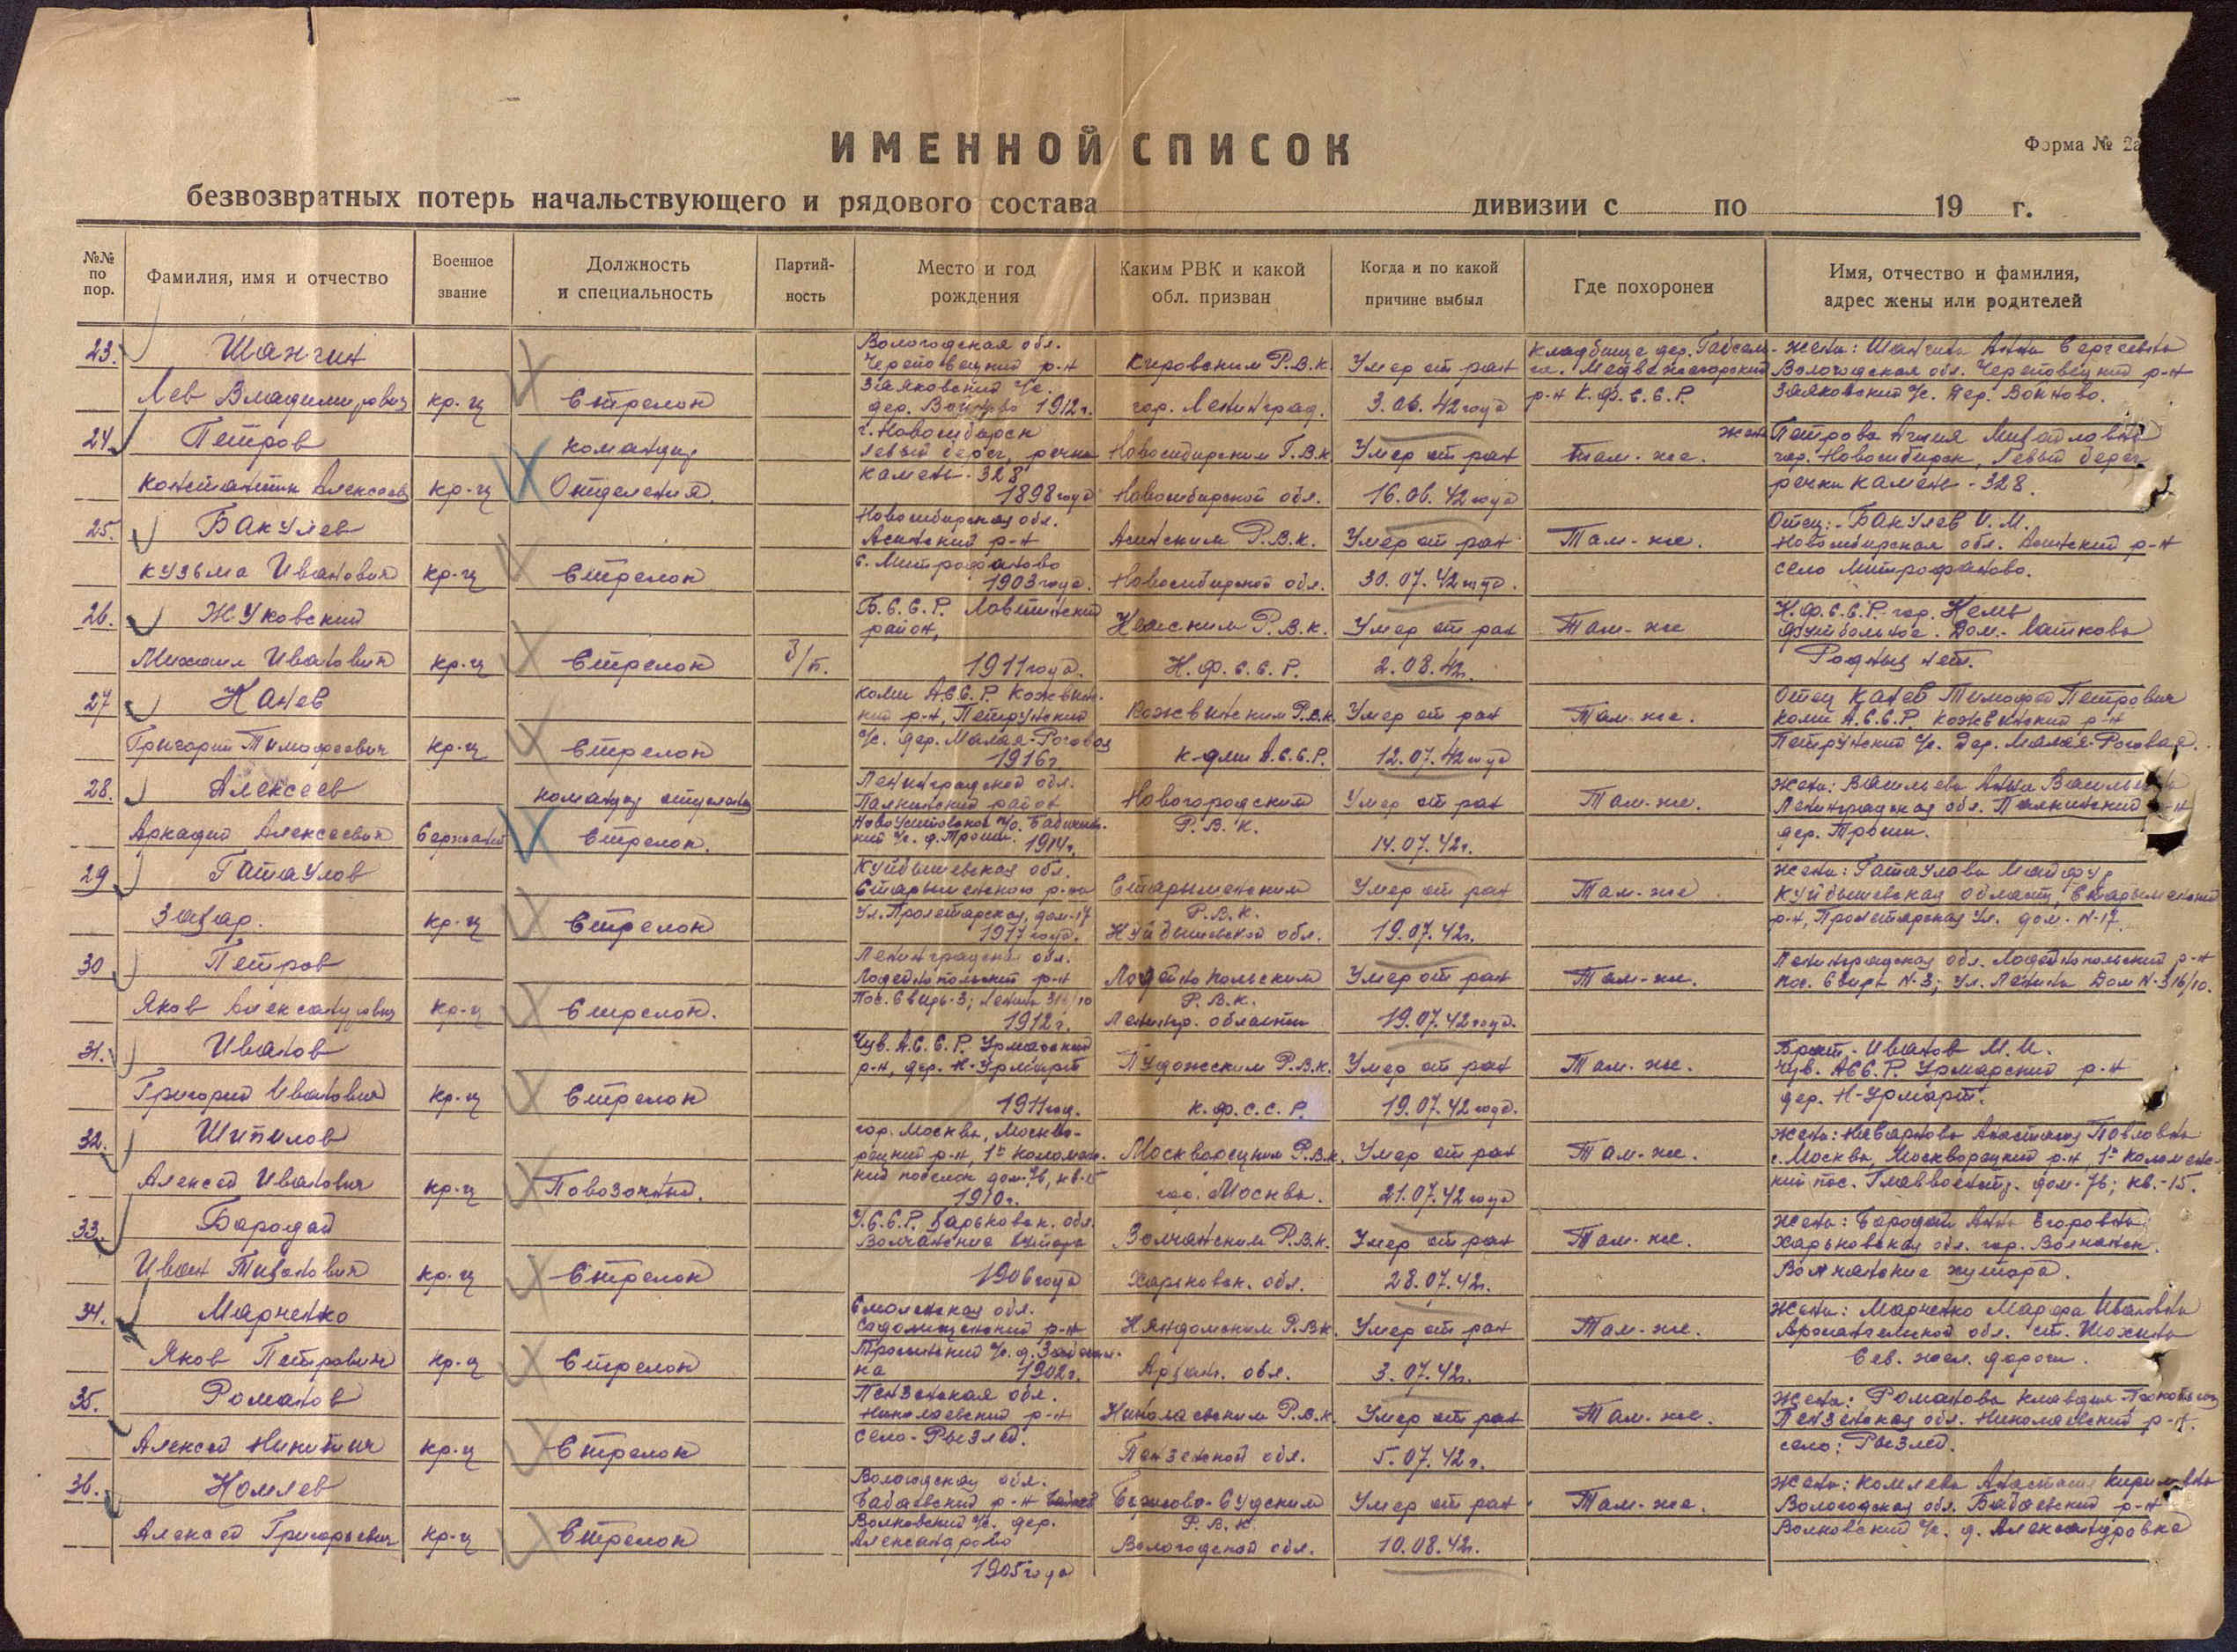 ИМЕННОЙ СПИСОК
Форма № 2а
безвозвратных потерь начальствующего и рядового состава дивизии с по 19 г.
№№ по пор.
Фамилия, имя и отчество
Военное звание
Должность и специальность
Партий-ность
Место и год рождения
Каким РВК и какой обл. призван
Когда и по какой причине выбыл
Где похоронен
Имя, отчество и фамилия, адрес жены или родителей
23. Шангин
Лев Владимирович
кр-ц
Стрелок
Вологодская обл.
Череповецкий р-н
с/с.
дер. Войново 1912 г.
Кировским Р.В.К.
гор. Ленинград.
Умер от ран
3.06.42 года
Кладбище дер.
Медвежегорский
р-н К.Ф.С.С.Р.
Жена: Шангина Анна Сергеевна
Вологодская обл. Череповецкий р-н
с/с. дер. Войново.
24. Петров
Константин Алексеев
кр-ц
командир
Отделения.
г. Новосибирск
левый берег, речка
Камень-328
1898 года
Новосибирским Г.В.К
Новосибирской обл.
Умер от ран
16.06.42 года
Там-же.
жена Петрова Михайловна
гор. Новосибирск, Левый берег
речки Камень-328.
25. Бакулев
Кузьма Иванович
кр-ц
Стрелок
Новосибирская обл.
Асинский р-н
с. Митрофаново
1903 года.
Асинским Р.В.К.
Новосибирской обл.
Умер от ран
30.07.42 года.
Там-же.
Отец:- Бакулев И.М.
Новосибирская обл. Асинский р-н
село Митрофаново.
26. Жуковский
Михаил Иванович
кр-ц
Стрелок
б/п.
Б.С.С.Р.
район,
1911 года.
Кемским Р.В.К.
К.Ф.С.С.Р.
Умер от ран
2.08.42г.
Там-же
К.Ф.С.С.Р. гор. Кемь
Дом.
Родных нет.
27 Канев
Григорий Тимофеевич
кр-ц
Стрелок
Коми А.С.С.Р. Кожвин-
кий р-н, Петрунский
с/с. дер. Малая-Роговая
1916 г
Кожвинским Р.В.К.
Коми А.С.С.Р.
Умер от ран
12.07.42 года
Там-же.
Отец Канев Тимофей Петрович
Коми А.С.С.Р. Кожвинский р-н
Петрунский с/с. дер. Малая-Роговая.
28. Алексеев
Аркадий Алексеевич
Сержант
командир отделения
Стрелок.
Ленинградской обл.
Палкинский район
с/с. д. Трошин. 1914 г.
Новогородским
Р.В.К.
Умер от ран
14.07.42г.
Там-же.
Жена: Васильева Анна Васильевна
Ленинградская обл. Палкинский р-н
дер. Трошин.
29 Гатаулов
Захар.
кр-ц
Стрелок
Куйбышевская обл.
ул. Пролетарская, дом-17
1917 года.
Р.В.К.
Куйбышевской обл.
Умер от ран
19.07.42г.
Там-же.
Жена: Гатаулова
Куйбышевская область,
р-н, Пролетарская ул. дом. N-17.
30 Петров
Яков Александрович
кр-ц
Стрелок.
Ленинградская обл.
Лодейнопольский р-н
Пос. Свирь-3; Ленина 316/10
1912г.
Лодейнопольским
Р.В.К.
Ленингр. области
Умер от ран
19.07.42 года.
Там-же.
Ленинградская обл. Лодейнопольский р-н
пос. Свирь N-3; ул. Ленина дом N-316/10.
31. Иванов
Григорий Иванович
кр-ц
Стрелок
Чув. А.С.С.Р. Урмарский
р-н, дер. Н-Урмарт
1911 год.
Пудожским Р.В.К.
К.Ф.С.С.Р.
Умер от ран
19.07.42 года.
Там-же.
Брат.- Иванов М.И.
Чув. АССР. Урмарский р-н
дер. Н-Урмарт.
32. Шипилов
Алексей Иванович
кр-ц
Повозочный.
гор. Москва, Москво-
рецкий р-н, 1й Коломен-
кий поселок дом-76, кв-15
1910г.
Москворецким Р.В.К.
гор. Москвы.
Умер от ран
21.07.42 года
Там-же.
Жена: Анастасия Павловна
г. Москва, Москворецкий р-н, 1й Коломен-
кий пос. дом-76; кв.-15.
33. Бородай
Иван Тиханович
кр-ц
Стрелок
У.С.С.Р. Харьковск. обл.
Волчанские хутора
1906 года
Волчанским Р.В.К.
Харьковск. обл.
Умер от ран
28.07.42г.
Там-же.
Жена: Бородай Анна Егоровна
Харьковская обл. гор. Волчанск.
Волчанские хутора.
34. Марченко
Яков Петрович
кр-ц
Стрелок
Смоленская обл.
1902г.
Няндомским Р.В.К.
Архан. обл.
Умер от ран
3.07.42г.
Там-же.
Жена: Марченко Марфа Ивановна
Архангельской обл. ст. Шожма
Сев. жел. дороги.
35. Романов
Алексей Никитич
кр-ц
Стрелок
Пензенская обл.
Николаевский р-н
село-Рызлей.
Николаевским Р.В.К.
Пензенской обл.
Умер от ран
5.07.42г.
Там-же.
Жена: Романова Клавдия
Пензенская обл. Николаевский р-н.
село: Рызлей.
36. Комлев
Алексей Григорьевич
кр-ц
Стрелок
Вологодская обл.
Бабаевский р-н
Волковский с/с. дер.
Александрово
1905 года
Борисово-Судским
Р.В.К.
Вологодской обл.
Умер от ран
10.08.42г.
Там-же.
Жена: Комлева Анастасия Кириловна
Вологодская обл. Бабаевский р-н
Волковский с/с. д. Александровка